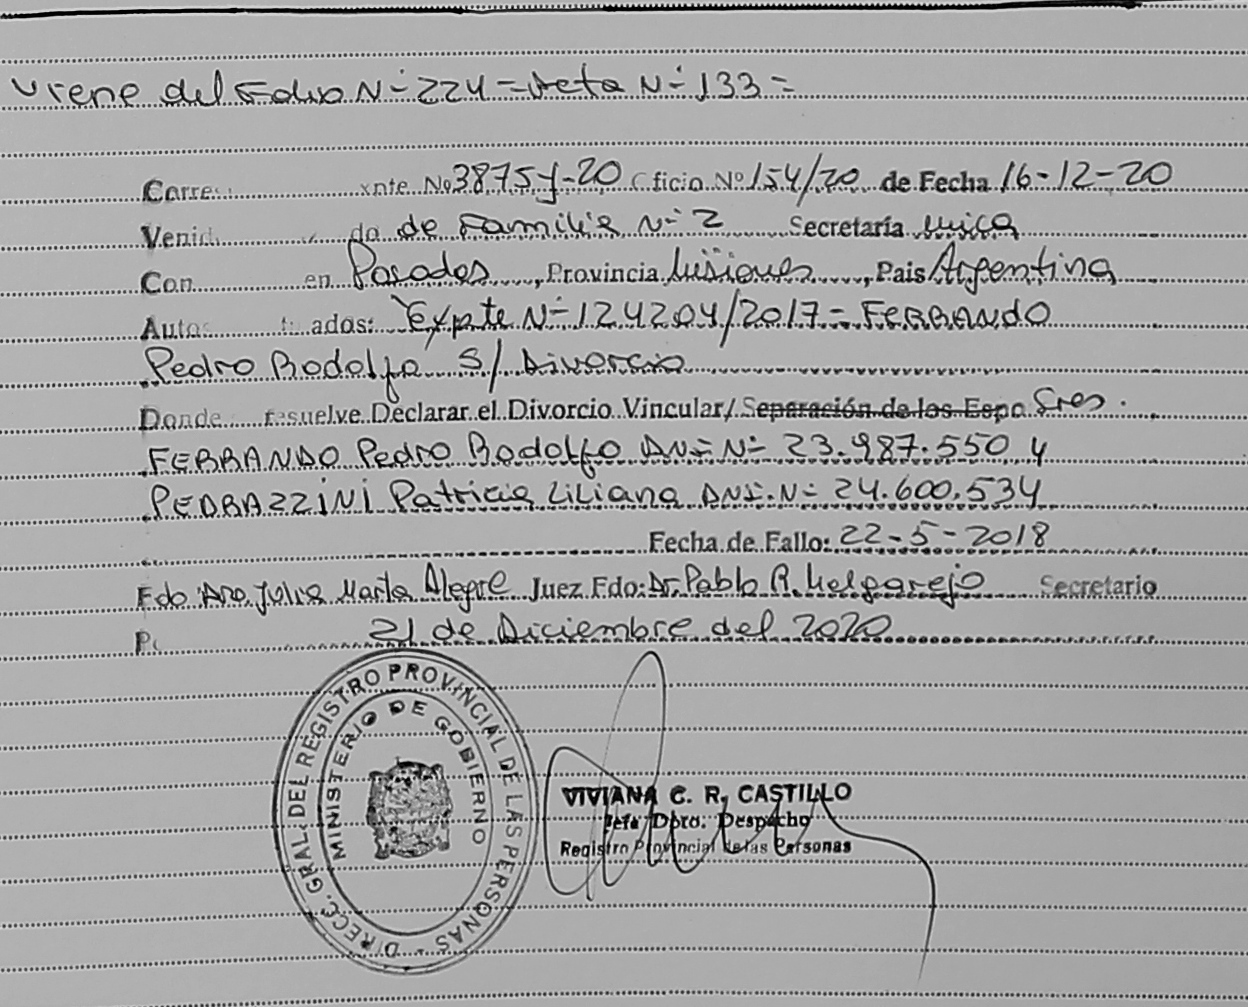 Viene del Folio N° 224 = Acta N° 133 =
Corre xnte No 3875-y-20 Oficio Nº 154/20 de Fecha 16-12-20
Venid do de Familia N° 2 Secretaría Única
Con en Posadas, Provincia Misiones, Pais Argentina
Autos adas: Expte N° 124204/2017 - FERRANDO
Pedro Rodolfo S/ Divorcio
Donde resuelve Declarar el Divorcio Vincular/ Separación de los Espo Sres.
FERRANDO Pedro Rodolfo DNI N° 23.987.550 y
PEDRAZZINI Patricia Liliana DNI. N° 24.600.534
Fecha de Fallo: 22-5-2018
Fdo Dra. Julia Marta Alegre Juez Fdo: Dr. Pablo R. Melgarejo Secretario
21 de Diciembre del 2020
DIRECC. GRAL. DEL REGISTRO PROVINCIAL DE LAS PERSONAS
MINISTERIO DE GOBIERNO
VIVIANA C. R. CASTILLO
Jefa Dpto. Despacho
Registro Provincial de las Personas